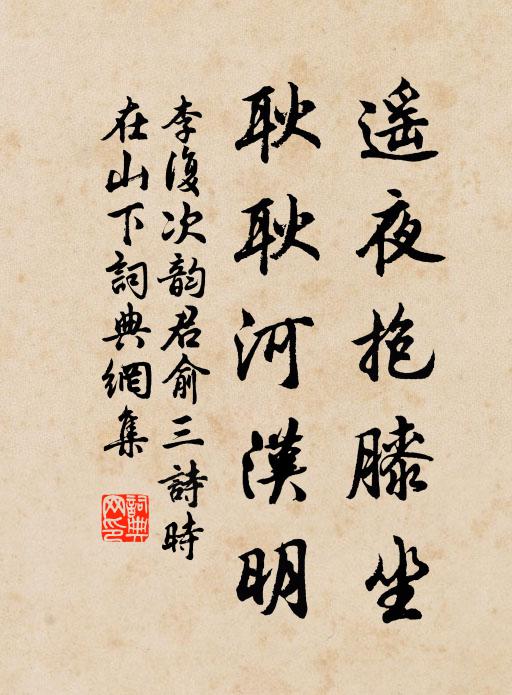 遥夜抱膝坐
耿耿河漢明
李復次韵君俞三詩時
在山下詞典網集
詞典
网印